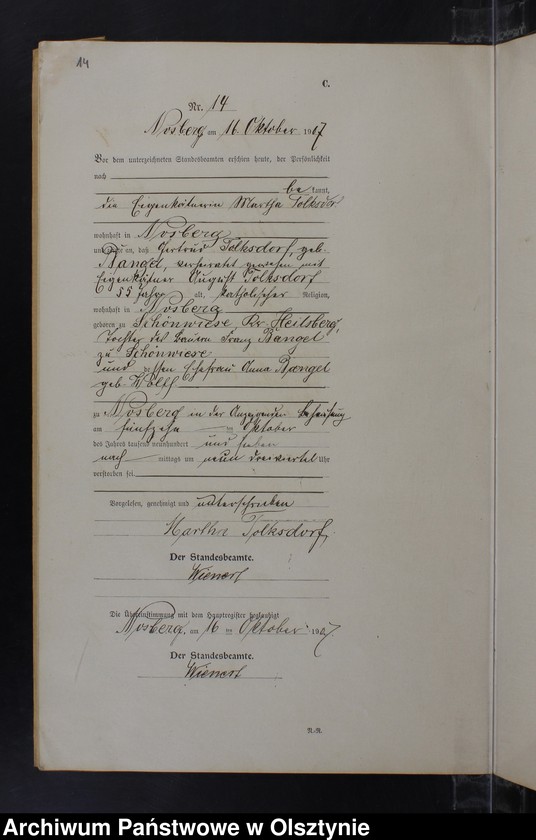 14
C.
Nr. 14
Nosberg am 16 Oktober 1907
Vor dem unterzeichneten Standesbeamten erschien heute, der Persönlichkeit
nach
be kannt,
die Eigenkätnerin Martha Tolksdorf
wohnhaft in Nosberg
und zeigte an, daß Gertrud Tolksdorf, geb.
Bangel, verheiratet gewesen mit
Eigenkätner August Tolksdorf
55 Jahre alt, katholischer Religion,
wohnhaft in Nosberg
geboren zu Schönwiese, Kr. Heilsberg,
Tochter des Bauern Franz Bangel
zu Schönwiese
und dessen Ehefrau Anna Bangel
geb. Wölff
zu Nosberg in der Behausung
am fünfzehn ten Oktober
des Jahres tausend neunhundert und sieben
nach mittags um neun dreiviertel Uhr
verstorben sei.
Vorgelesen, genehmigt und unterschrieben
Martha Tolksdorf
Der Standesbeamte.
Wienert
Die Übereinstimmung mit dem Hauptregister beglaubigt
Nosberg, am 16 ten Oktober 1907
Der Standesbeamte.
Wienert
Archiwum Państwowe w Olsztynie